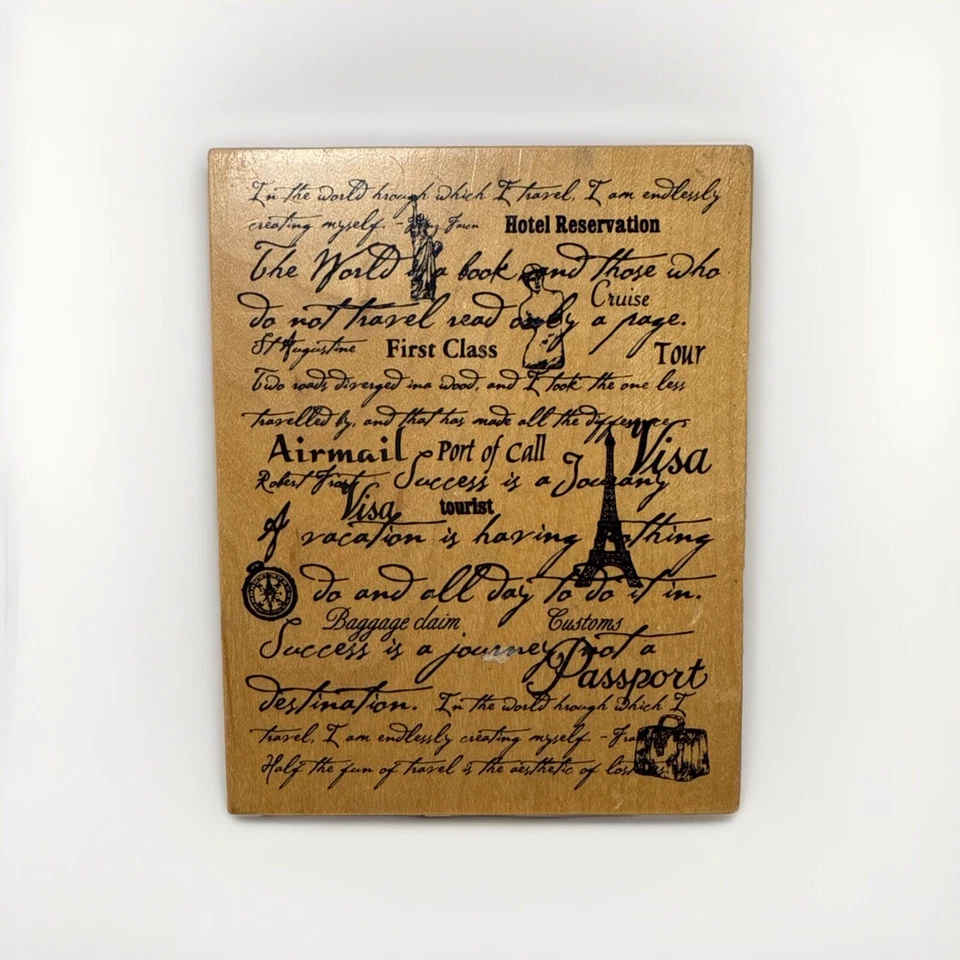 In the world hrough which I travel, I am endlessly
creating myself. -
Hotel Reservation
The World a book and those who
Cruise
do not travel read only a page.
St Augustine
First Class
Tour
Two roads diverged ina wood, and I took the one less
travelled by, and that has made all the difference
Airmail
Port of Call
Visa
Robert Frost
Success is a Jo
Visa
tourist
A vacation is having nothing
do and all day to do it in.
Baggage claim
Customs
Success is a journey not a
Passport
destination. In the world hrough which I
travel, I am endlessly creating myself. -
Half the fun of travel is the aesthetic of